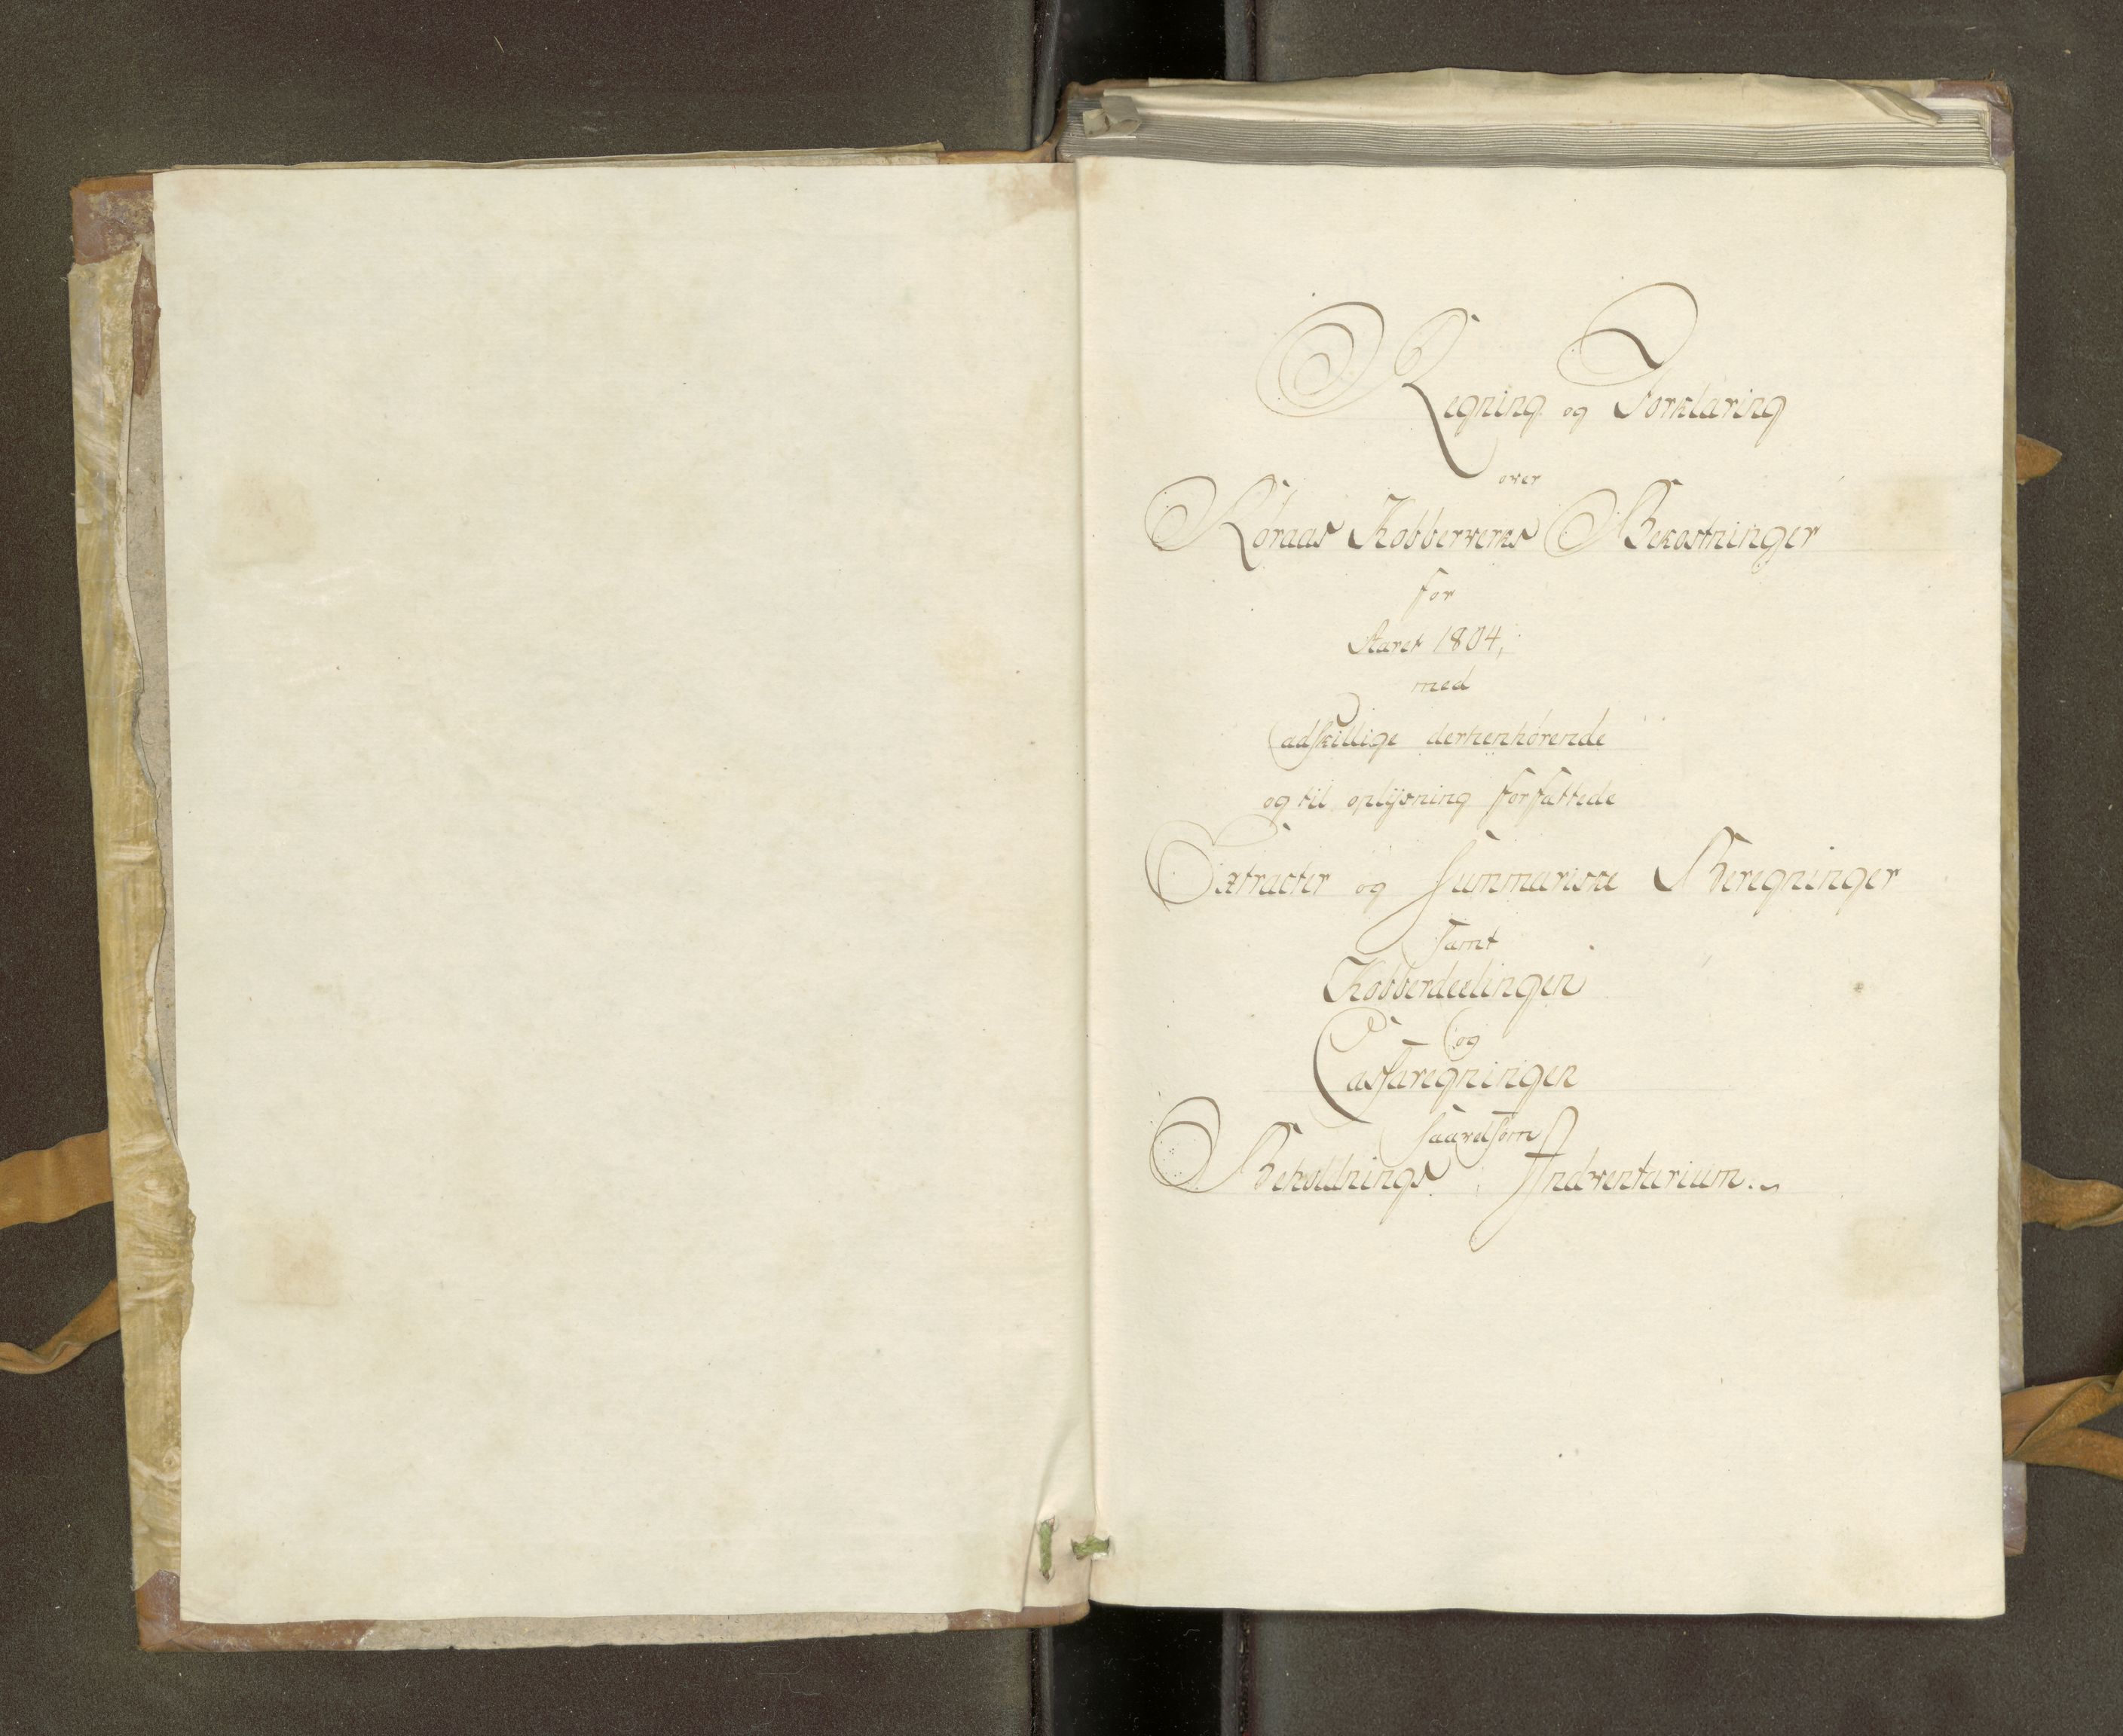 Regning og Forklaring
over
Röraas Kobberverks Bekostninger
for
Aaret 1804,
med
adskillige derhenhörende
og til oplijsning forfattede
Extracter og Summariske Beregninger
samt
Kobberdeelingen
og
Cassaregningen
saavelsom
Beholdnings Indventarium.